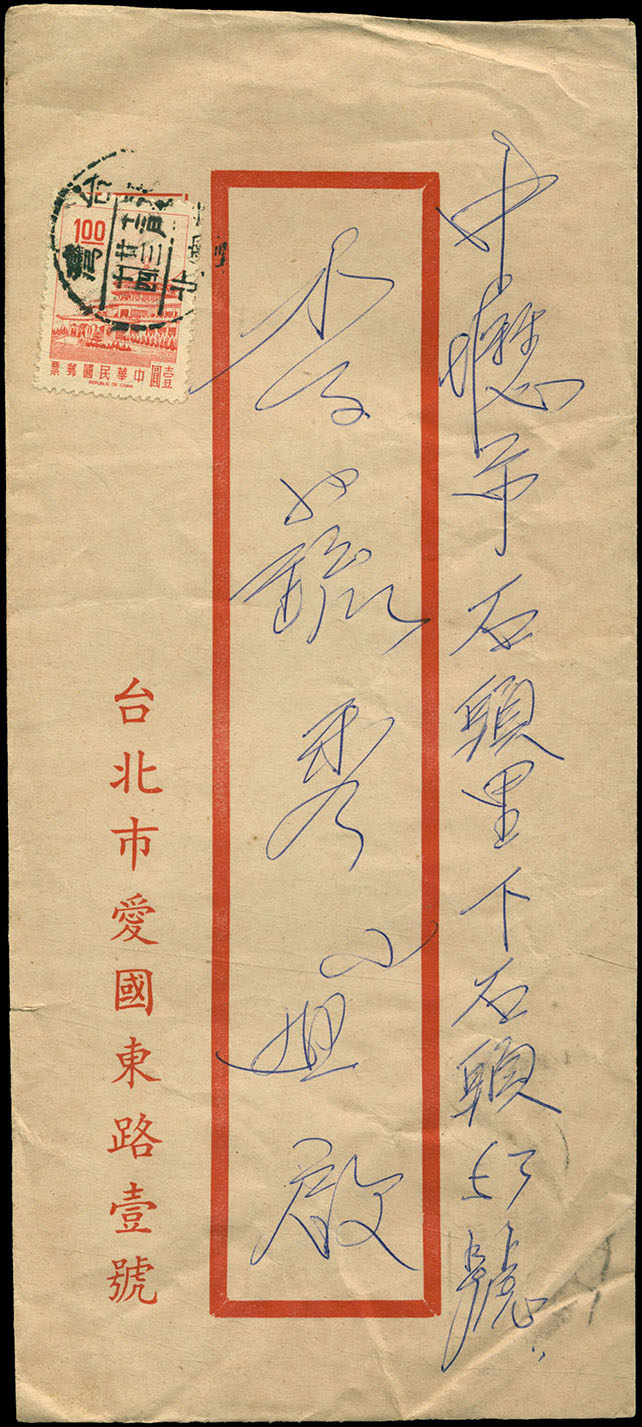 中壢市石頭里下石頭號
李蔬秀小姐啟
台北市愛國東路壹號
1.00
壹圓中華民國郵票
REPUBLIC OF CHINA
台灣